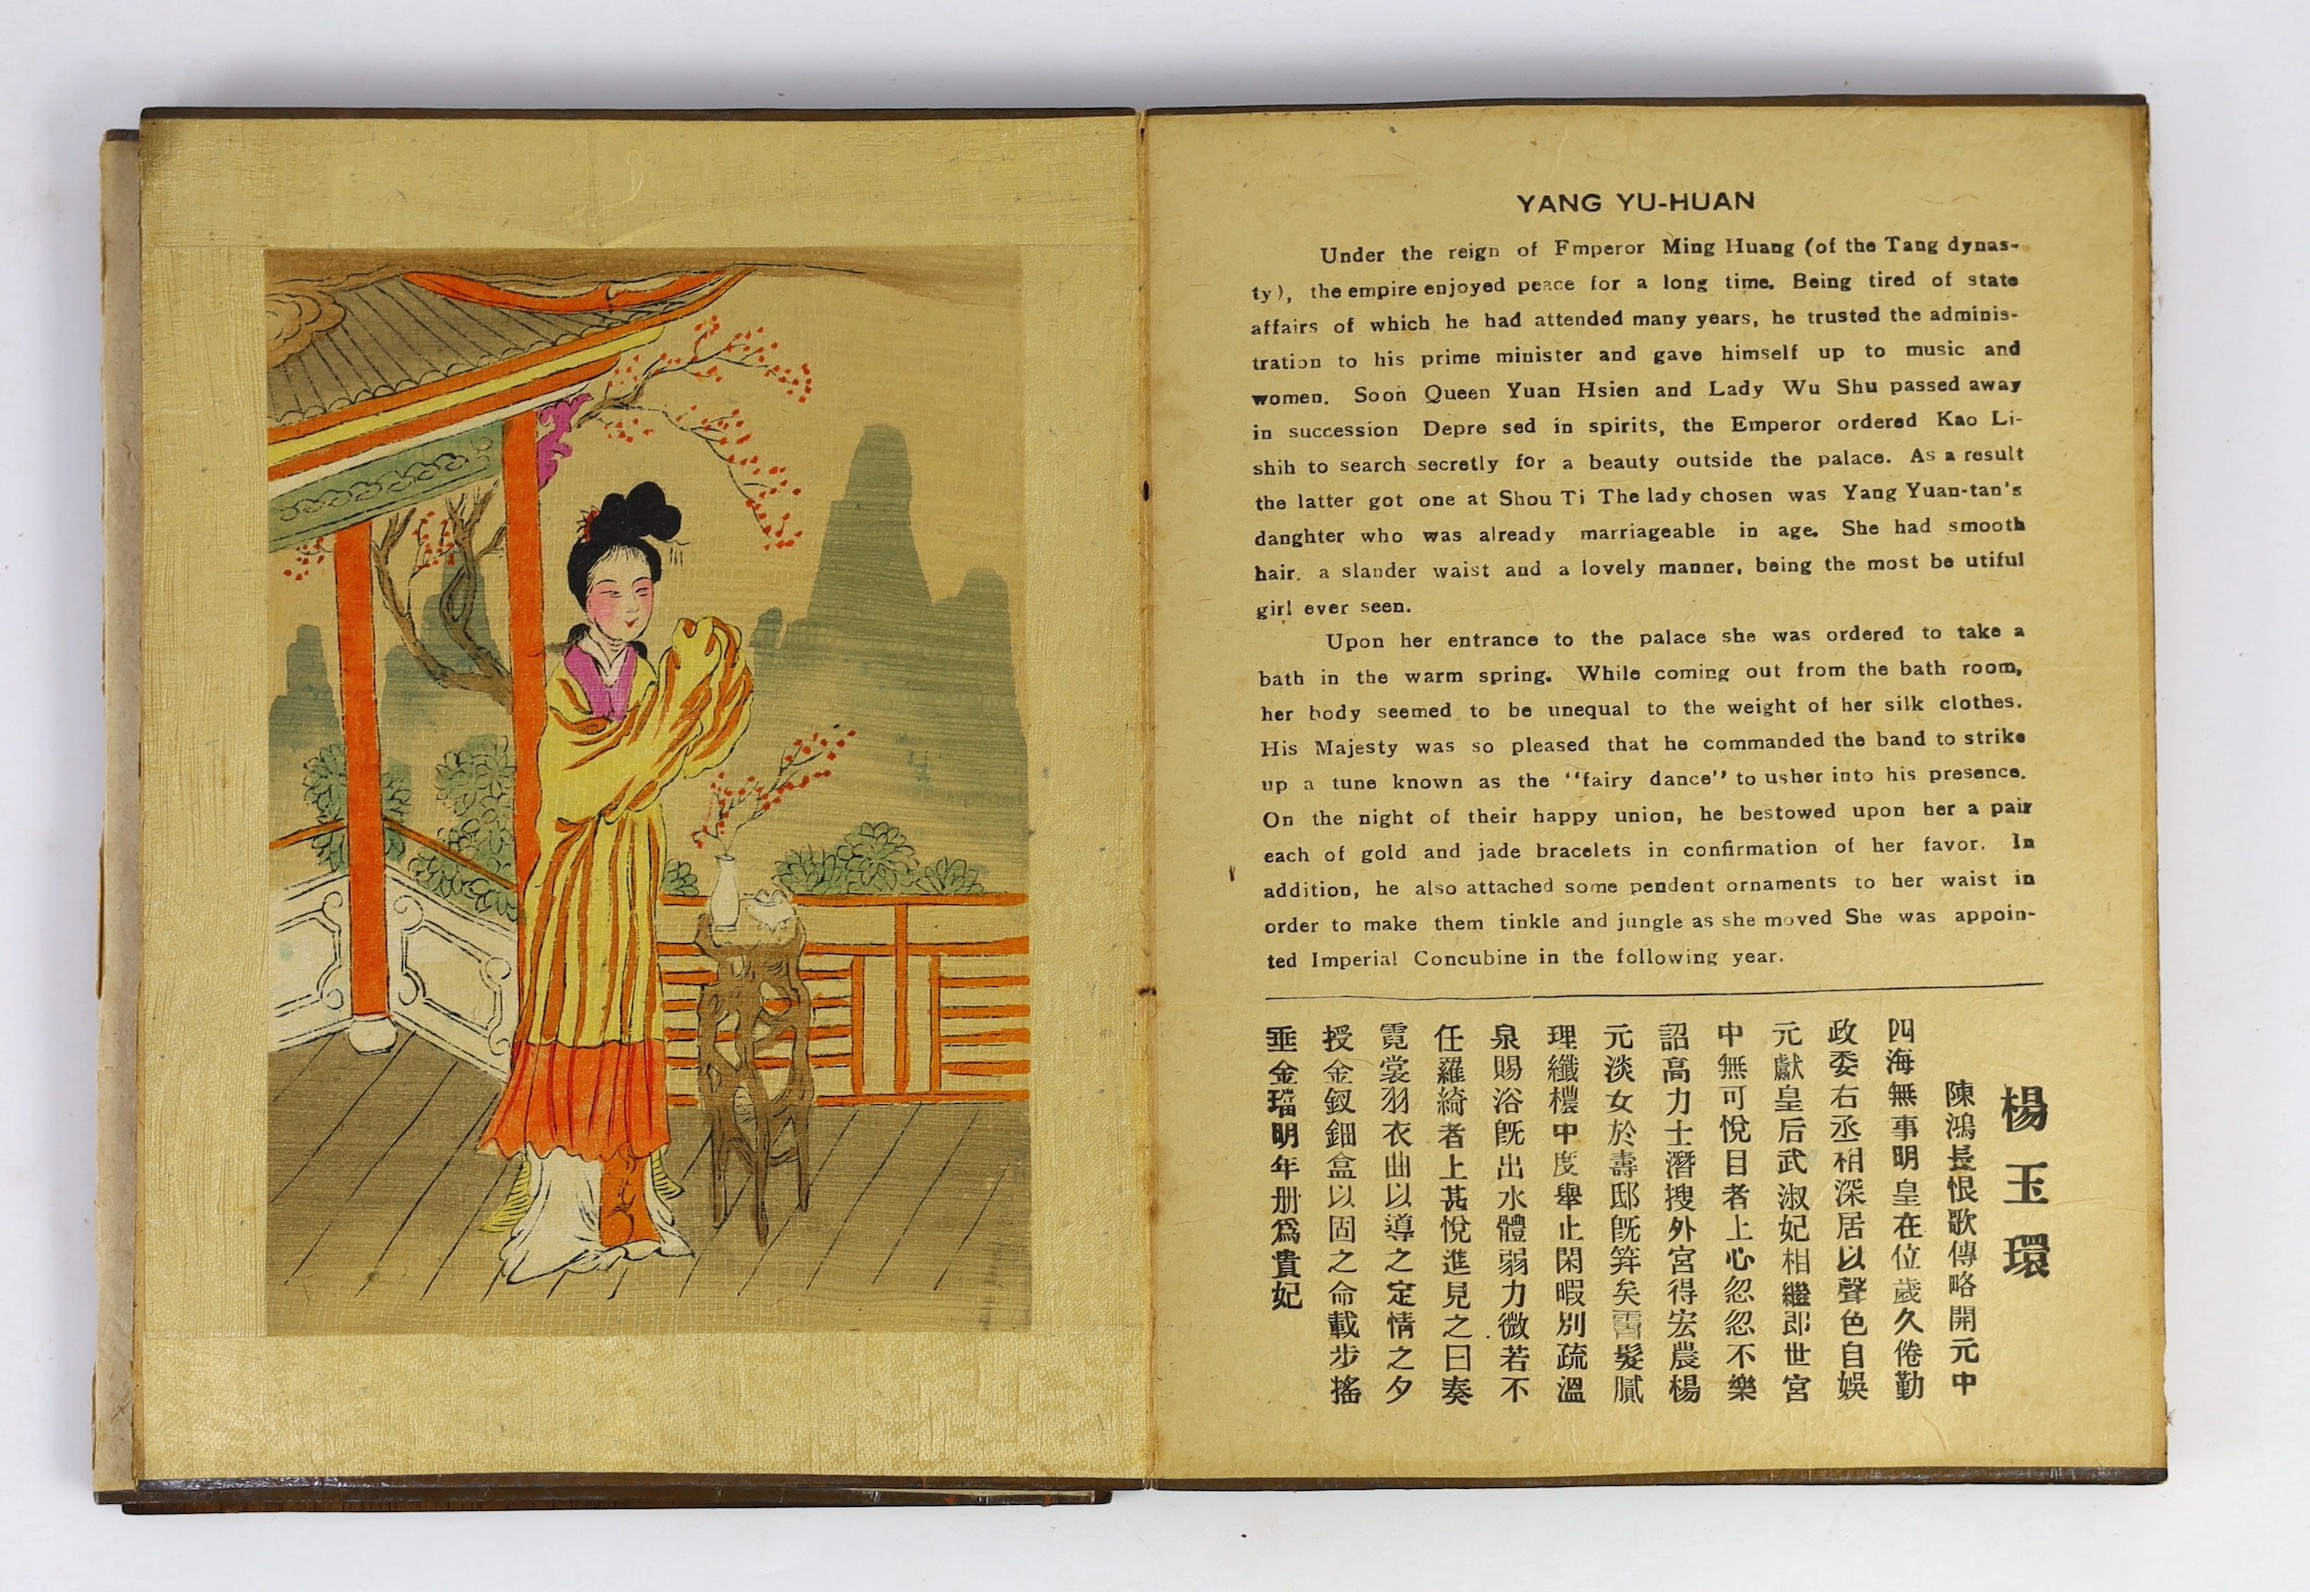 YANG YU-HUAN
Under the reign of Fmperor Ming Huang (of the Tang dynas-
ty), the empire enjoyed peace for a long time. Being tired of state
affairs of which he had attended many years, he trusted the adminis-
tration to his prime minister and gave himself up to music and
women. Soon Queen Yuan Hsien and Lady Wu Shu passed away
in succession Depre sed in spirits, the Emperor ordered Kao Li-
shih to search secretly for a beauty outside the palace. As a result
the latter got one at Shou Ti The lady chosen was Yang Yuan-tan's
danghter who was already marriageable in age. She had smooth
hair. a slander waist and a lovely manner, being the most be utiful
girl ever seen.
Upon her entrance to the palace she was ordered to take a
bath in the warm spring. While coming out from the bath room,
her body seemed to be unequal to the weight of her silk clothes.
His Majesty was so pleased that he commanded the band to strike
up a tune known as the "fairy dance" to usher into his presence.
On the night of their happy union, he bestowed upon her a pair
each of gold and jade bracelets in confirmation of her favor. In
addition, he also attached some pendent ornaments to her waist in
order to make them tinkle and jungle as she moved She was appoin-
ted Imperial Concubine in the following year.
楊玉環
陳鴻長恨歌傳略開元中
四海無事明皇在位歲久倦勤
政委右丞相深居以聲色自娛
元獻皇后武淑妃相繼即世宮
中無可悅目者上心忽忽不樂
詔高力士潛搜外宮得宏農楊
元淡女於壽邸旣笄矣髮膩
理纖穠中度舉止閑暇別疏溫
泉賜浴旣出水體弱力微若不
任羅綺者上甚悅進見之日奏
霓裳羽衣曲以導之定情之夕
授金釵鈿盒以固之命載步搖
垂金璫明年册爲貴妃